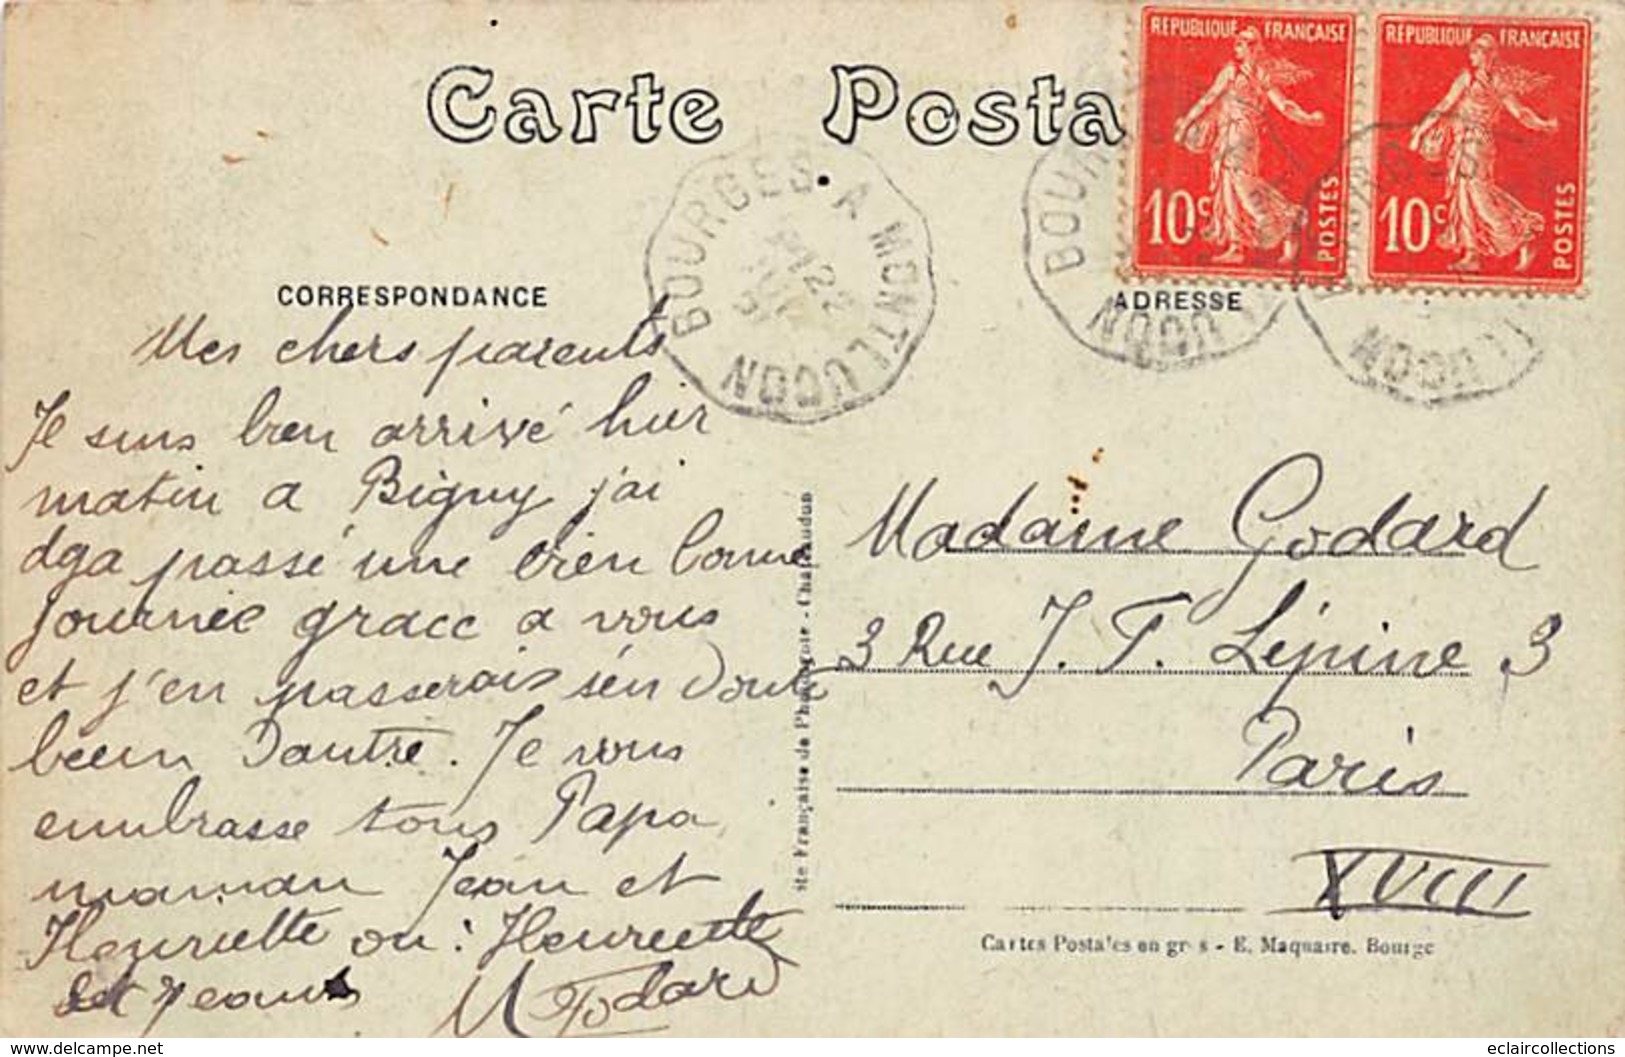 Carte Posta
REPUBLIQUE FRANÇAISE
10c
POSTES
REPUBLIQUE FRANÇAISE
10c
POSTES
BOURGES A MONTLUCON
22
CORRESPONDANCE
ADRESSE
Mes chers parents
Je suis bien arrivé hier
matin a Bigny j'ai
dga passé une bien bonne
journée grace a vous
et j'en passerais sén doute
beein Dautre. Je vous
embrasse tous Papa
maman Jean et
Henriette ou : Henriette
et Jean
M Godard
Ste Française de Phototypie - Chateaudun
Madame Godard
3 Rue J. F. Lépine 3
Paris
XVIII
Cartes Postales en gros - E. Maquaire. Bourge
www.delcampe.net
eclaircollections